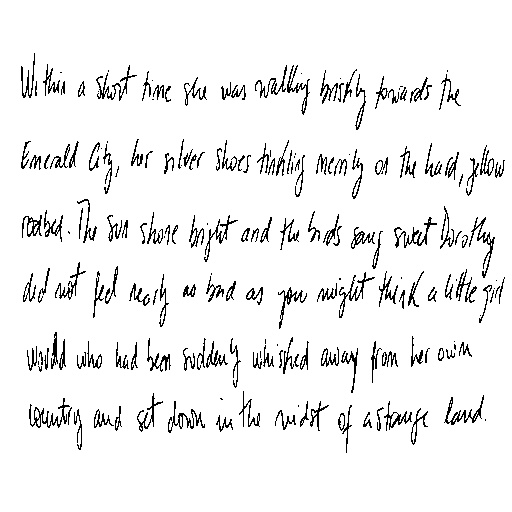 Within a short time she was walking briskly towards the
Emerald City, her silver shoes tinkling merrily on the hard, yellow
roadbed. The sun shone bright and the birds sang sweet Dorothy
did not feel nearly as bad as you might think a little girl
would who had been suddenly whisked away from her own
country and set down in the midst of a strange land.